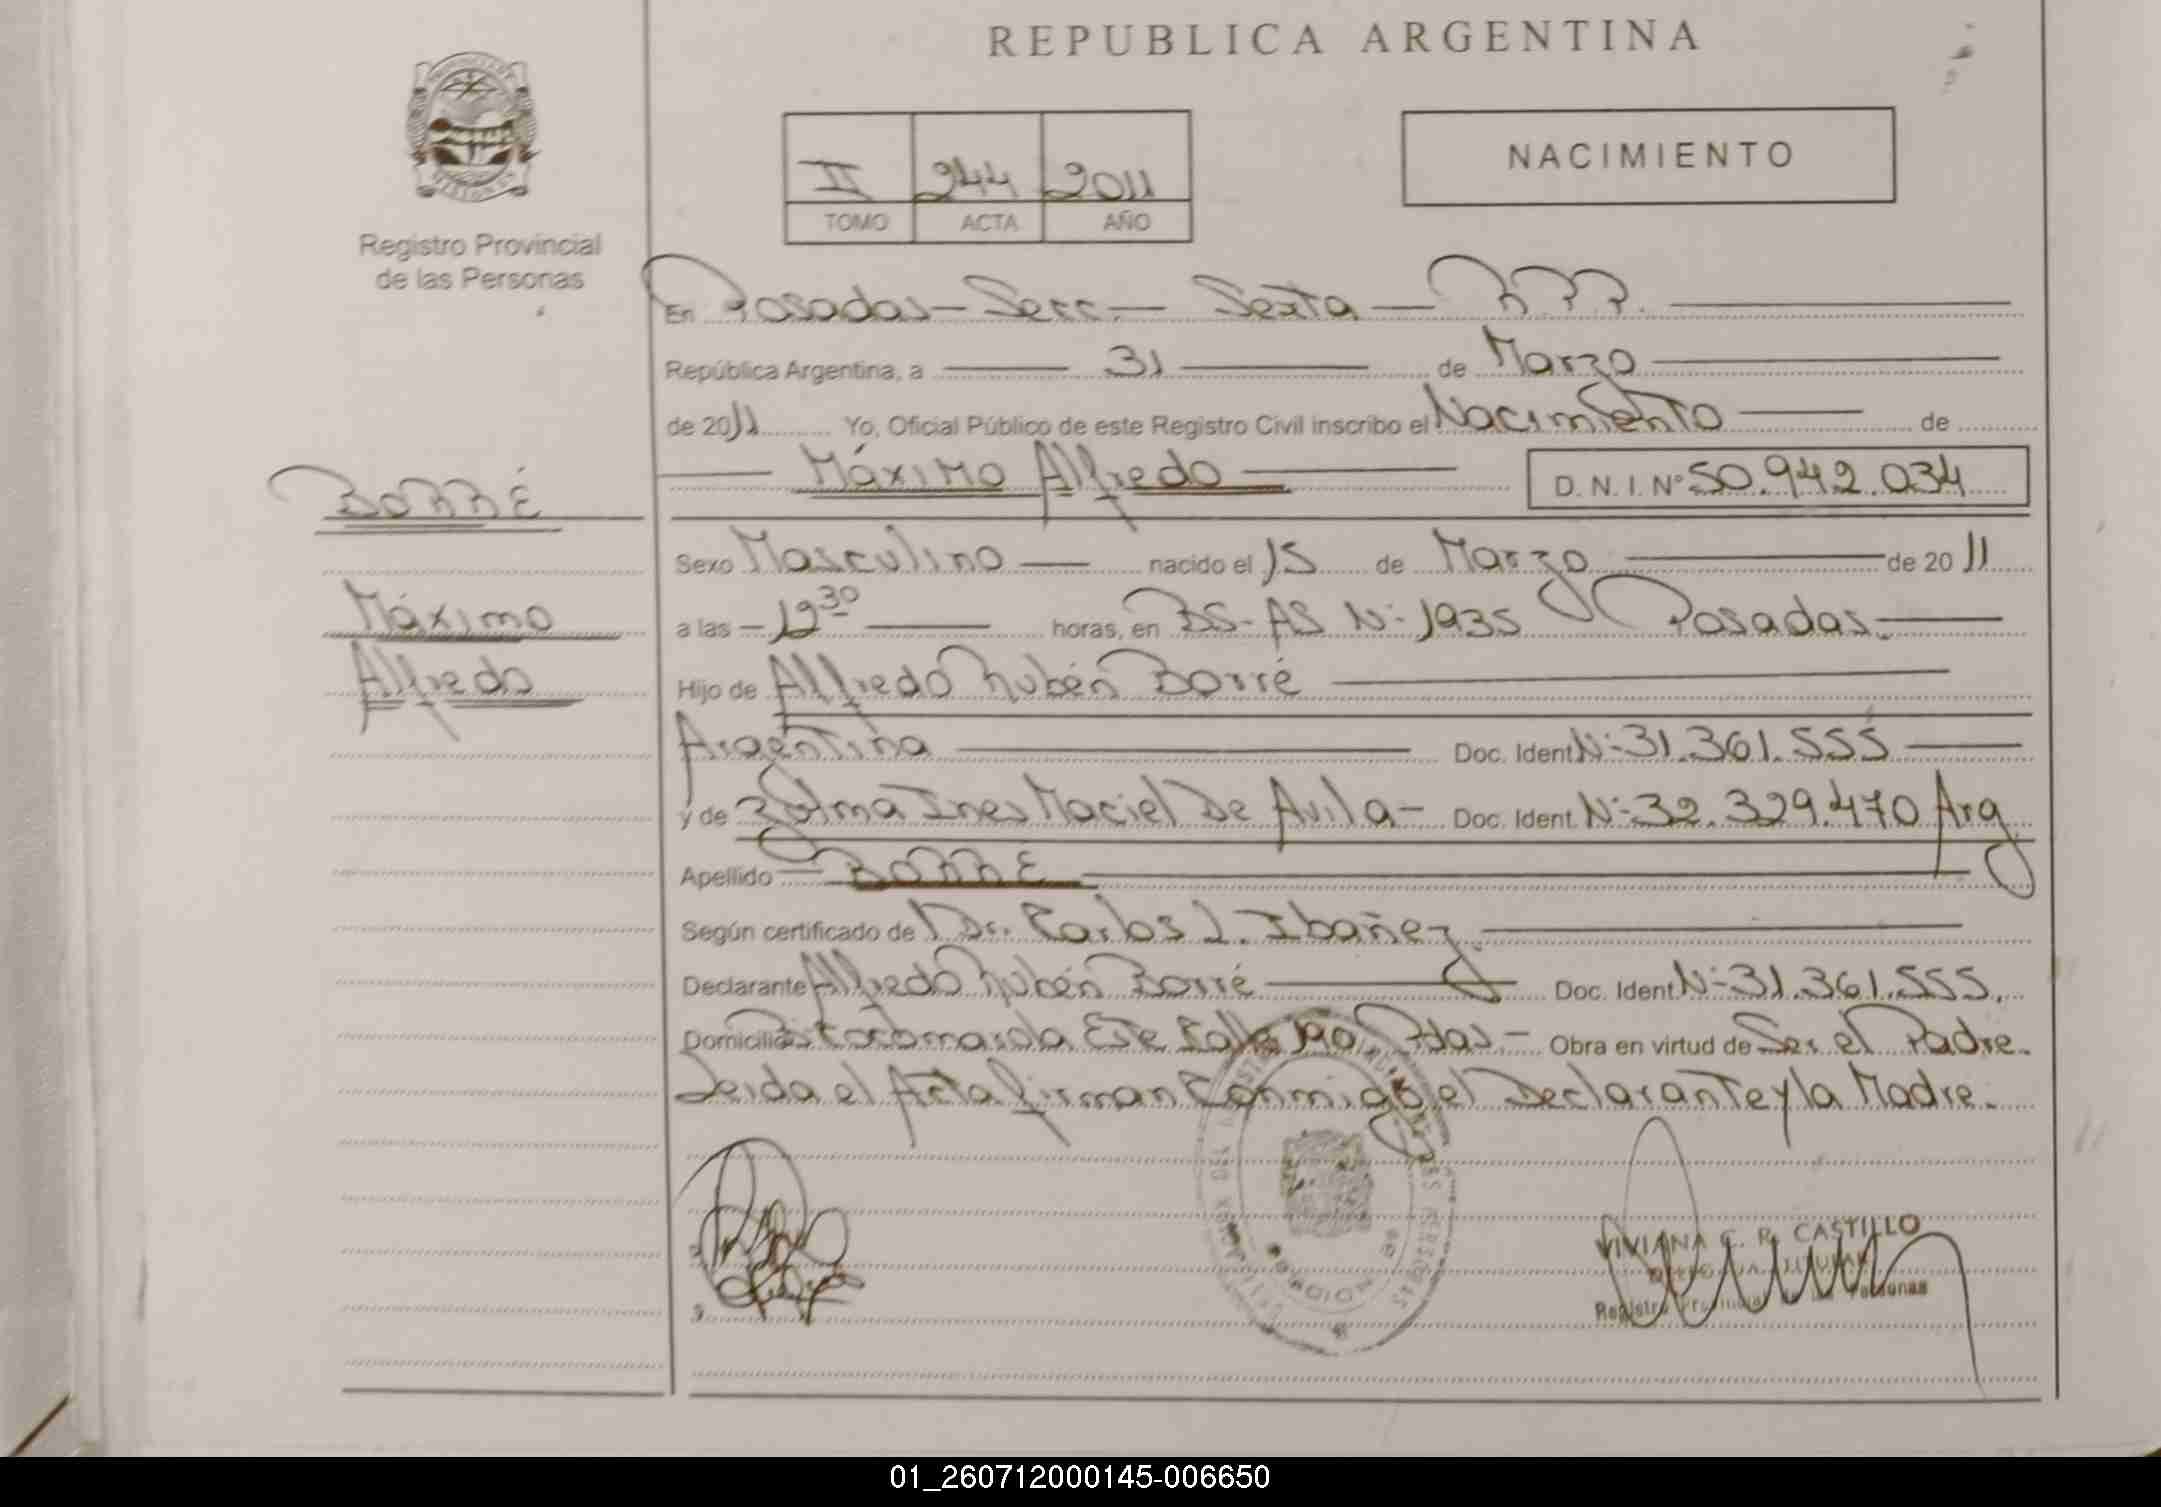 REPUBLICA ARGENTINA
Registro Provincial
de las Personas
II 244 2011
TOMO ACTA AÑO
NACIMIENTO
En Posadas - Secc. - Sexta - R.P.P.
República Argentina, a 31 de Marzo
de 2011 Yo, Oficial Público de este Registro Civil inscribo el Nacimiento de
Máximo Alfredo D.N.I. Nº 50.942.034
BORRÉ
Máximo
Alfredo
Sexo Masculino nacido el 15 de Marzo de 2011
a las - 12 30 horas, en BS-AS Nº 1935 Posadas.
Hijo de Alfredo Rubén Borré
Argentina Doc. Ident Nº 31.361.555
y de Zulma Ines Maciel De Avila - Doc. Ident. Nº 32.329.470 Arg
Apellido BORRÉ
Según certificado de Dr. Carlos L. Ibañez.
Declarante Alfredo Rubén Borré Doc. Ident Nº 31.361.555.
Domicilio Este Calle 190 Pdas. - Obra en virtud de Ser el Padre.
Leida el Acta firman Conmigo el Declarante y la Madre.
VIVIANA C. R. CASTILLO
Registro Provincial de las Personas
01_260712000145-006650